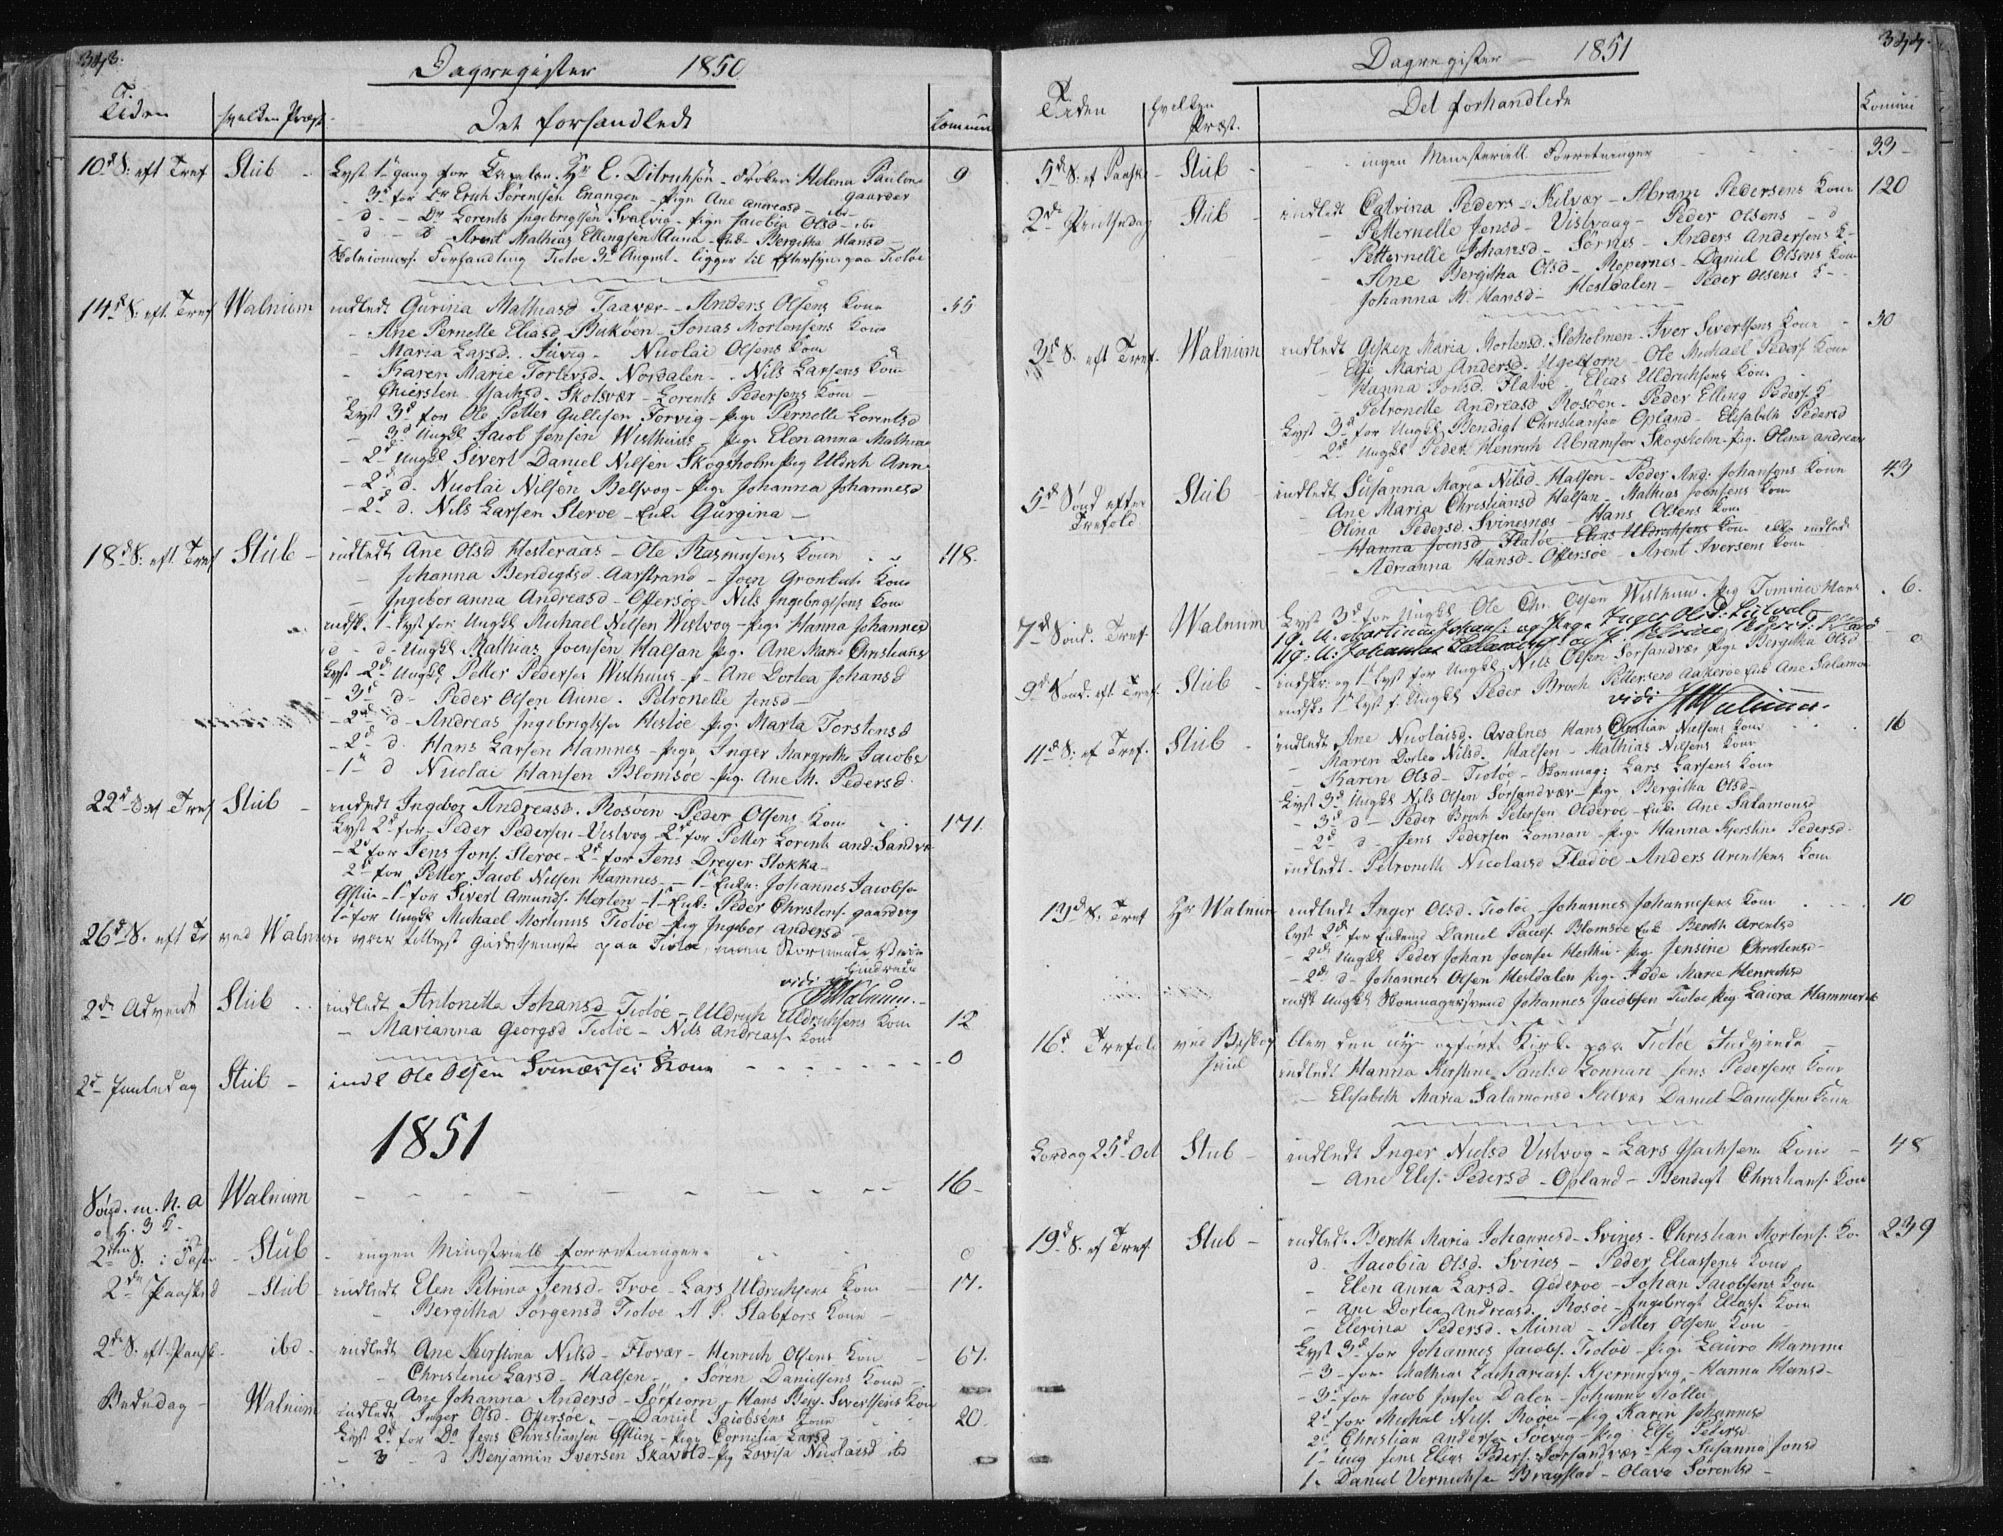 343.
Dagregister 1850
Tiden hvelken Præst Det forhandlede Commun
10d S: eft Tref Stub Lyst 1te gang for Capelan Hr C. Ditrichsen - Frøken Helena Pauline 9
- 3d for Er Erich Sørensen Enangen - Pige Ane Andreasd - ibi - Gaarder
- d - - Dr Lorents Ingebrigtsen Svalvia - Pige Jacobia Olsd - ibi
- d - - D Arent Mathias Ellingsen Auna - Enk- Bergitha Hansd -
Forhandling Tiotøe 3d August - ligger til Eftersyn paa Tiotøe
14d S: eft. Tref Walnum indledt Gurina Mathiasd Taavær - Anders Olsens Kone 55
- Ane Pernelle Eliasd Bukøen - Jonas Mortensens Kone
- Maria Larsd. Juvig - Nicolai Olsens Kone
- Karen Marie Torlevsd - Nordalen - Nils Larsens Kone
- Chiersten Isachsd - Skotsvær - Lorents Pedersens Kone -
Lyst 3d for Ole Petter Gullisen Forvig - Pige Pernelle Lorentsd
- 3d Ungkl Jacob Jensen Wisthuus - Pige Elen anna Mathias
- 2d Ungkl Sivert Daniel Nilsen Skogsholm Pig Uldrich Ann
- 2d d. Nicolai Nilsen Belsvog - Pige Johanna Johannesd
- 2d d. Nils Larsen Sleroe - Enk. Gurgina -
18d S: eft Tref Stub - indledt Ane Olsd Hesteraas - Ole Rasmusens Kone 48.
- Johanna Bendigtsd Aarstrand - Joen Grønbech Kone
- Ingebor anna Andreasd - Offersøe - Nils Ingebrigtsens Kone
indsk. 1te Lyst for Ungkl Michael Nilsen Wistvog - Pige Hanna Johannesd
d - d - Ungkl Mathias Joensen Halsan Pig. Ane Mari Christians
Lyst 2d Ungkl Petter Pedersen Wisthuus - p - Ane Dortea Johansd
- 3d d - Peder Olsen Aune. Petronelle Jensd -
- 2nd d - Andreas Ingebrigtsen Hestøe Pig. Marta Torstensd
- 2d d. Hans Larsen Hamnes - Pige Inger Margrethe Jacobs
- 1te d Nicolai Hansen Blomsøe - Pig. Ane M. Pedersd.
22d S: ef Tref Stub - indledt Ingebor Andreasd. Rosøen Peder Olsens Kone 171.
Lyst 2d for Peder Pedersen - Vistvog - 2d for Petter Lorents and: Sandvæ
- 2d for Jens Jons. Sleroe - 2d for Jens Dreyer Stokka -
2d for Petter Jacob Nilsen Hamnes - 1te Enke: Johannes Jacobse
Offsøe - 1te for Sivert Amunds. Herlen - 1te Enk: Peder Christens. gaarderg
1te for Ungkl Michael Mortinus Tiotøe - Pig Ingebor Andersd -
26d S. eft Tr ved Walnum var tillyst Gudstjeneste paa Tiotøe, men Stormende Veir
hindrede
vidi Walnum.
2d Advent Stub indledt Antonetta Johansd Tiotøe - Uldrich Uldrichsens Kone 12
- Marianna Georgsd Tiotøe - Nils Andreass. Kone
2d Juuledag Stub - indl Ole Olsen Svinæssis Kone - 0
1851
Sønd. m. N. A Walnum - - - - - - 16 -
o H. 3 K.
2den S. i Faste - Stub - ingen Ministrielle forretninger. 0
2d Paasked - Stub - indledt Elen Petrina Jensd. Troe - Lars Uldrichsens Kone - 17.
- Bergitha Jørgensd Tiotøe A P. Stabfors Kone -
2d S. eft. Paask - ibd - indledt Ane Kirstina Nilsd - Flovær - Henrich Olsens Kone - 67.
- Christense Larsd - Halsen - Søren Danielsens Kone -
- Ane Johanna Andersd - Sørfiorn - Hans Beng. Sivertsens Kone
Bededag - Walnum indledt Inger Olsd - Offersøe - Daniel Jacobsens Kone 20.
Lyst 2d for Do Jens Christiansen Offsøe - Pige Cornelia Larsd
- 3 - d Benjamin Iversen Skavold - Pig Lovisa Nicolaisd ibd
344.
Dagregister - 1851
Tiden hvelken Præst. Det forhandlede Comuni
5d S. ef Paask - Stub - - - ingen Ministeriell Forretninger - 33 -
2d Pintsedag Stub - indledt Catrina Peders - Kilvær - Abram Pedersens Kone 120
- Petternelle Jensd - Vistvaag - Peder Olsens - d
- Petternelle Johansd - Sørnes - Anders Andersens K -
- Ane Bergitha Olsd - Ropernes - Daniel Olsens Kone
- Johanna M. Hansd - Hestdalen - Peder Olsens K - -
3d S. eft Tref. Walnum indledt Gisken Maria Mortensd. Sleholmen - Iver Sivertsens Kone 30
- Else Maria Andersd. Ugeltorn - Ole Michael Peders. Kone
- Hanna Jonsd. Flatøe - Elias Uldrichsens Kone
- Petronelle Andreasd Rosøen - Peder Elling Peders. K
Lyst 3d for Ungkl Bendigt Christiansen Opland - Elisabeth Pedersd
2d Ungkl Peder Henrich Abramsen Skogsholm - Pig. Olina Andreas
5d Sønd efter Trefold Stub - indledt Susanna Maria Nilsd - Halsen - Peder And. Johansens Kone 43
- Ane Maria Christiansd Halsan - Mathias Joensens Kone
- Olina Pedersd Svinesnæs - Hans Olsens Kone
- Hanna Joensd Flatøe - Elias Uldrichsens Kone ikke indledt
- Adrianna Hansd - Offersøe - Arent Iversens Kone
7d Sønd. Tref. Walnum Lyst 3d for Ungkl Ole Chr. Olsen Wisthuus. Pig Tomina Hans 6.
1 G. U. Martinus Johans. og Pige Inger Olsd.
9d Sønd. eft Tref. Stub - indskr. og 1te Lyst for Ungkl Nils Olsen Sørsandvær Pige Bergitha Olsd 0
indsk. 1te Lyst f. Ungkl Peder Broch Pettersen Aakerøe Enk Ane Salamo
vidi Walnum.
11d S: ef Tref. Stub - indledt Ane Nicolaisd. Qvalnes Hans Christian Nielsens Kone 16
- Maren Dortea Nilsd. Halsen - Mathias Nilsens Kone
- Karen Olsd - Tiotøe - Skomag: Lars Larsens Kone
Lyst 3d Ungkl Nils Olsen Sørsandvær - Pige Bergitha Olsd -
- 3d d - Peder Broch Petersen Olderoe - Enke Ane Salamonsd
- 2d d - Jens Pedersen Lonnan - Pige Hanna Kjerstine Pedersd.
indledt - Petronille Nicolaisd Fladøe - Anders Arentsens Kone
13d S. Tref Hr Walnum indledt Inger Olsd. Tiotøe - Johannes Johannesens Kone 10
Lyst 2d for Enkemd Daniel Pauls. Blomsøe Enk Bereth Arentsd
- 2d Ungkl Peder Johan Joensen Hesthu - Pig Jensine Christensd -
- 2d d - Johannes Olsen Hestdalen Pige Adde Marie Henrichsd
indsk Ungkl Skomagersvend Johannes Jacobsen Tiotøe Pig Laura Hammerik
16d Trefold ved Biskop Juul blev den nye opførte Kirke paa Tiotøe Indviede
indledt Hanna Kirstine Paulsd Lonnan - Jens Pedersens Kone
- Elisabeth Maria Salamonsd Kilvær Daniel Danielsens Kone
Lørdag 25d Oct Stub - indledt Inger Nielsd Vistvog - Lars Isachsens Kone - 48
- Ane Elis. Pedersd - Opland - Bendigt Christians. Kone
19d S. ef Tref. Stub - indledt Bereth Maria Johannesd - Svines - Christian Mortens. Ko. 239
d. Jacobia Olsd. Svines - Peder Eliassens Kone
- Elen Anna Larsd - Gederoe - Johan Jacobsens Kone
- Ane Dortea Andreasd. Rosøe - Ingebrigt Eliass. Kone
- Elerina Pedersd. Auna - Petter Olsens Kone -
Lyst 3d for Johannes Jacobs. Tiotøe - Pige Laura Hamme
- 3 - for - Mathias Zachariass. Kjerringvig - Hanna Hansd -
- 3d for Jacob Jonsen Dalen - Johanna Statle
2d for Michal Nils. Roøen - Pig Karen Johannesd
2d Christian Anderssen Soevig - Pige Else Pedersd
1te Ung Jens Elias Peders. Sørsandvær - Pig Susanna Jonsd
1te Daniel Vernichsen Braystad - Olava Sørentsd -